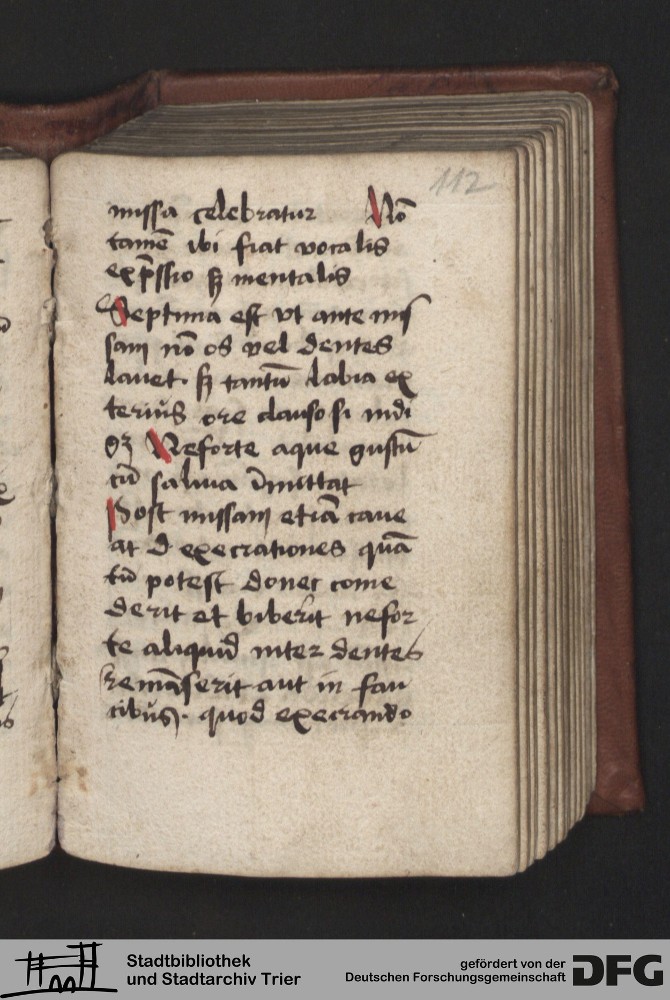 112
missa celebratur Nō
tamē ibi fiat vocalis
exp̄ssio sꝫ mentalis
Septima est vt ante mis
sam nō os vel dentes
lauet. sꝫ tantū labia ex
teriꝰ ore clauso si indi
gꝫ Neforte aque gustū
cū saliua
Post missam etiā caue
at d execrationes quā
tū potest donec come
derit et biberit nefor
te aliquid inter dentes
remāserit aut in fau
cibus. quod execrando
Stadtbibliothek
und Stadtarchiv Trier
gefördert von der
Deutschen Forschungsgemeinschaft
DFG